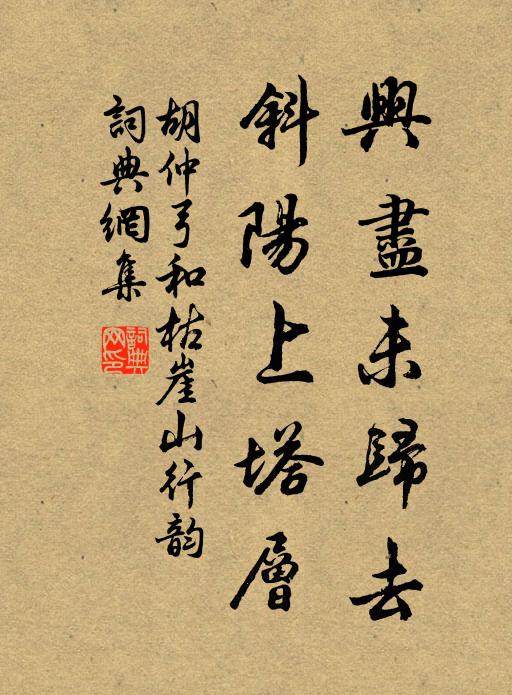 興盡未歸去
斜陽上塔層
胡仲弓和枯崖山行韵
詞典網集
詞典網印